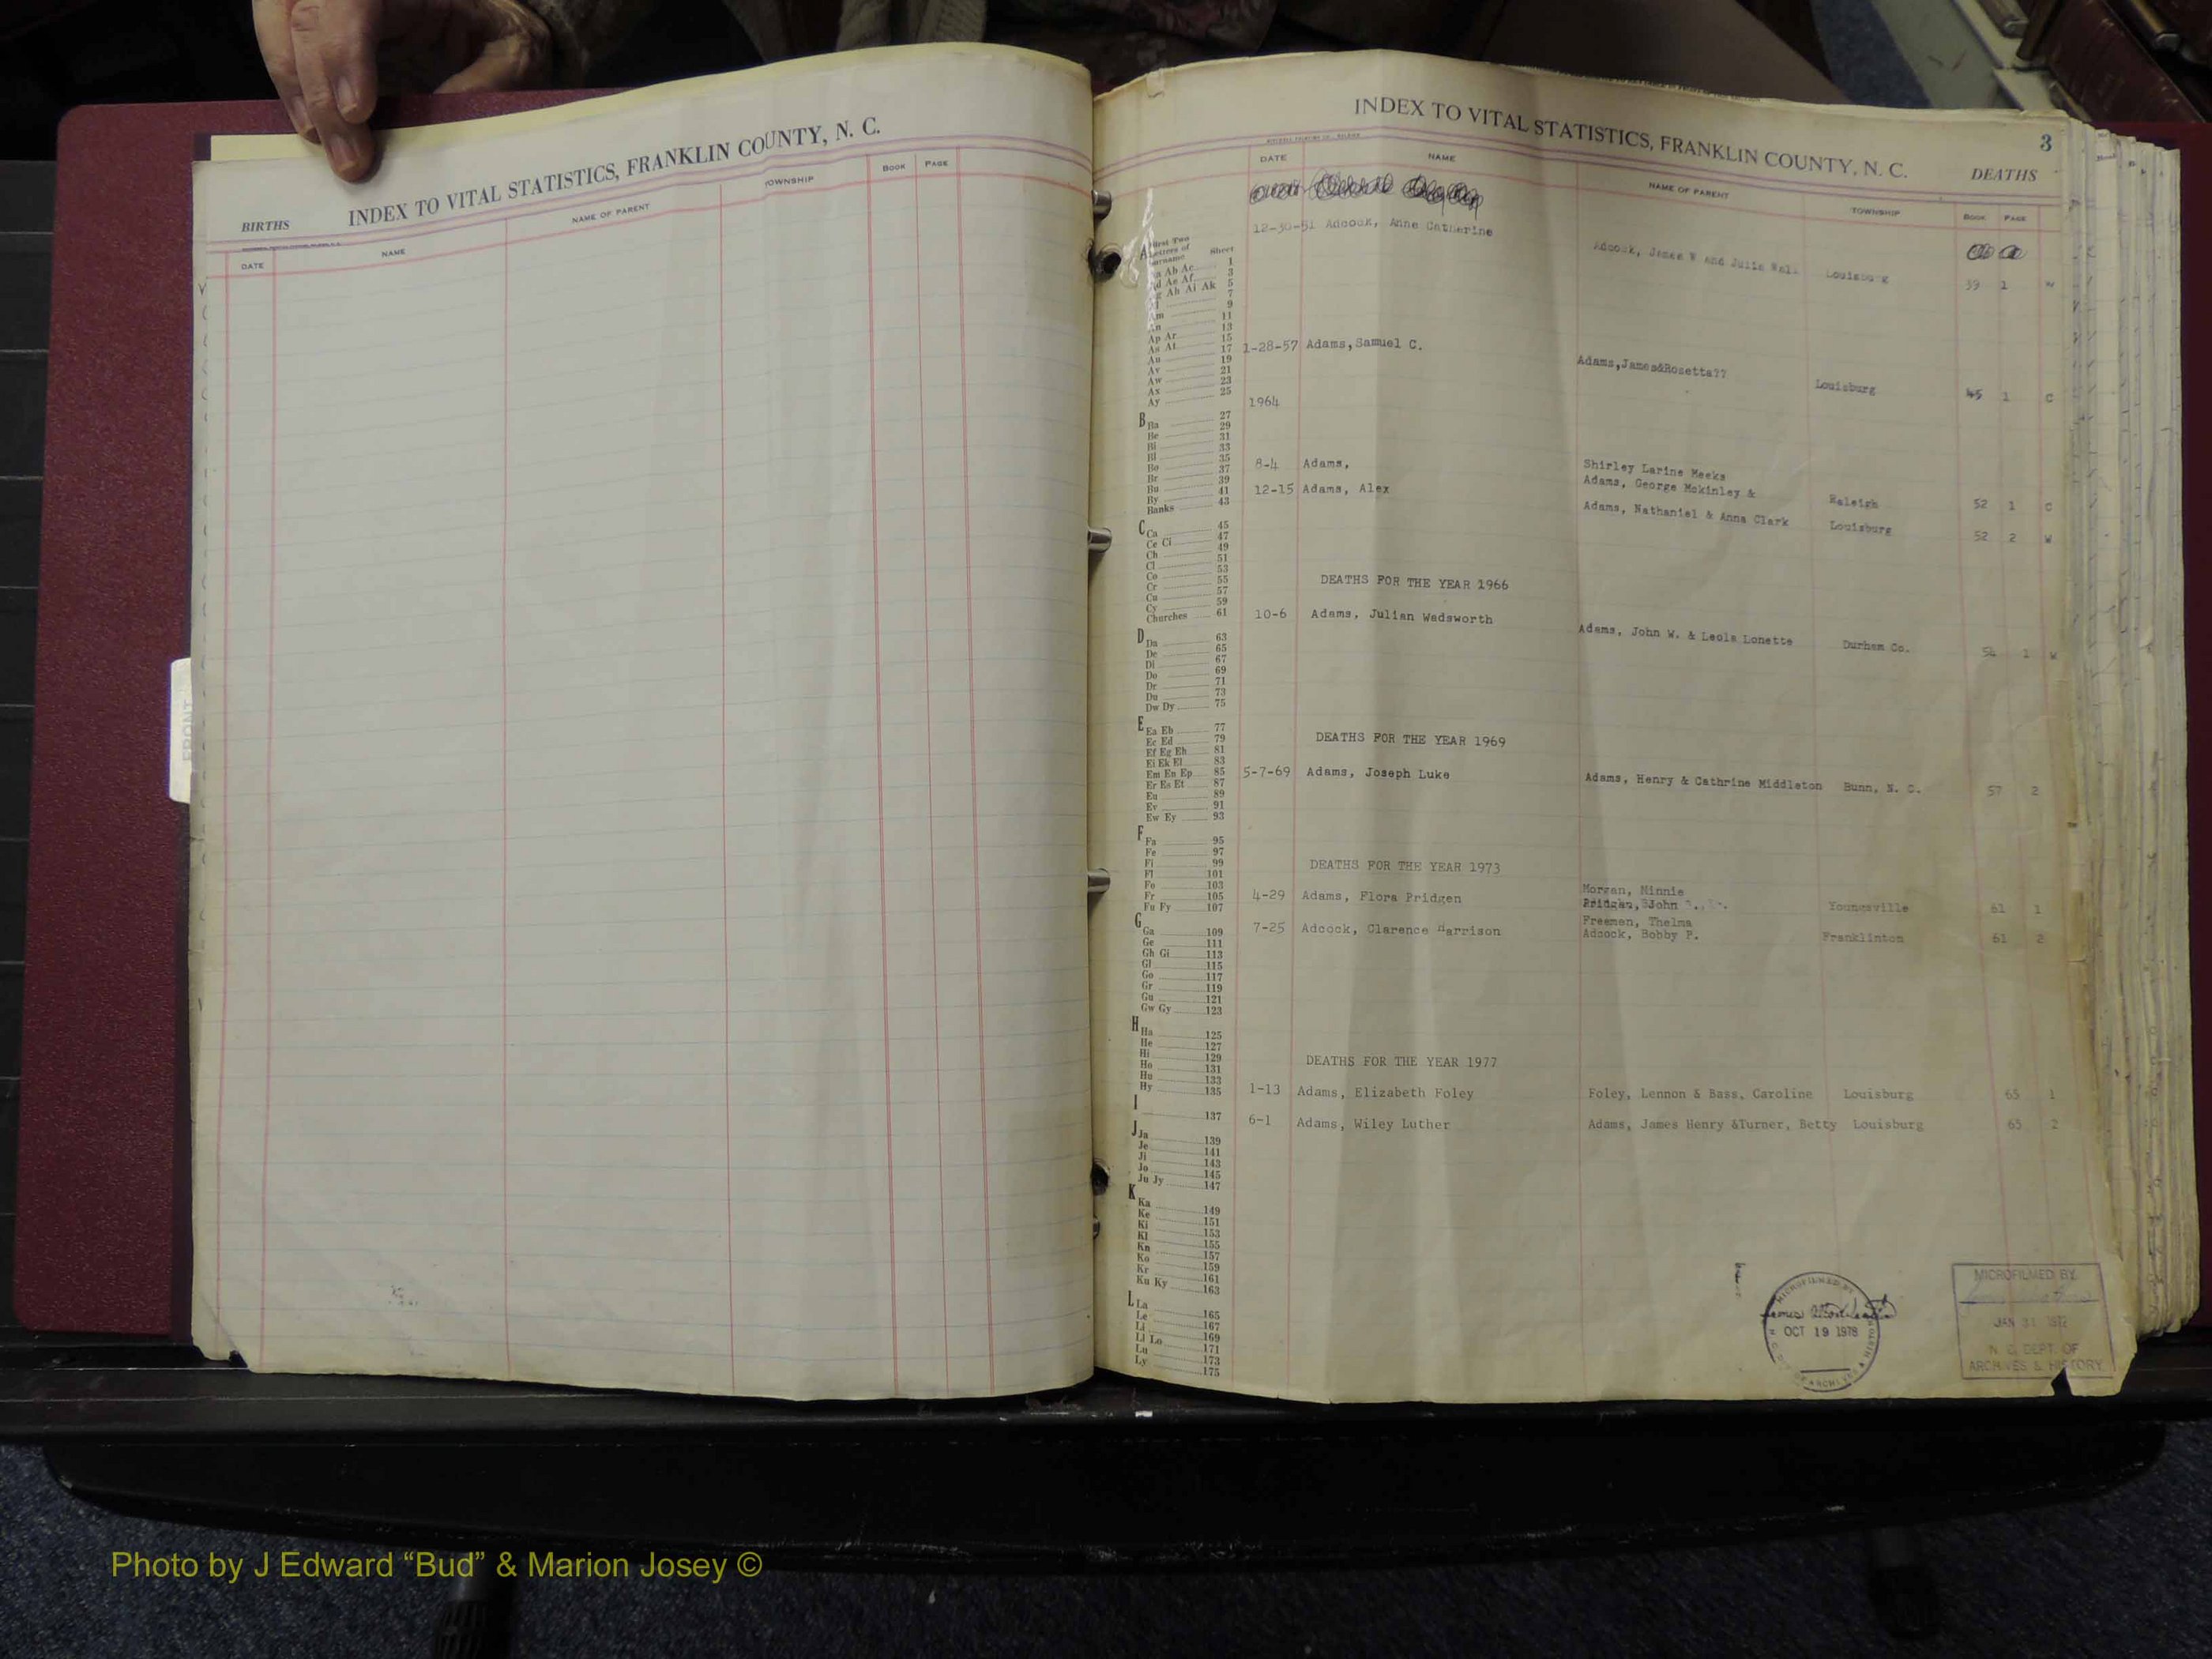 INDEX TO VITAL STATISTICS, FRANKLIN COUNTY, N. C.
BIRTHS
DATE NAME NAME OF PARENT TOWNSHIP BOOK PAGE
FRONT
INDEX TO VITAL STATISTICS, FRANKLIN COUNTY, N. C.
3
DEATHS
DATE NAME NAME OF PARENT TOWNSHIP BOOK PAGE
12-30-51 Adcock, Anne Catherine Adcock, James W and Julia Wall Louisburg 39 1 W
1-28-57 Adams,Samuel C. Adams,James&Rosetta?? Louisburg 45 1 C
1964
8-4 Adams, Shirley Larine Meeks
Adams, George Mckinley & Raleigh 52 1 C
12-15 Adams, Alex Adams, Nathaniel & Anna Clark Louisburg 52 2 W
DEATHS FOR THE YEAR 1966
10-6 Adams, Julian Wadsworth Adams, John W. & Leola Lonette Durham Co. 54 1 W
DEATHS FOR THE YEAR 1969
5-7-69 Adams, Joseph Luke Adams, Henry & Cathrine Middleton Bunn, N. C. 57 2
DEATHS FOR THE YEAR 1973
Morgan, Minnie
4-29 Adams, Flora Pridgen Pridgen, John Youngsville 61 1
Freemen, Thelma
7-25 Adcock, Clarence Harrison Adcock, Bobby P. Franklinton 61 2
DEATHS FOR THE YEAR 1977
1-13 Adams, Elizabeth Foley Foley, Lennon & Bass, Caroline Louisburg 65 1
6-1 Adams, Wiley Luther Adams, James Henry &Turner, Betty Louisburg 65 2
First Two
Letters of
Surname Sheet
A
Aa Ab Ac 1
Ad Ae Af 3
Ag Ah Ai Ak 5
Al 7
Am 9
An 11
Ap Ar 13
As At 15
Au 17
Av 19
Aw 21
Ax 23
Ay 25
B
Ba 27
Be 29
Bi 31
Bl 33
Bo 35
Br 37
Bu 39
By 41
Banks 43
C
Ca 45
Ce Ci 47
Ch 49
Cl 51
Co 53
Cr 55
Cu 57
Cy 59
Churches 61
D
Da 63
De 65
Di 67
Do 69
Dr 71
Du 73
Dw Dy 75
E
Ea Eb 77
Ec Ed 79
Ef Eg Eh 81
Ei Ek El 83
Em En Ep 85
Er Es Et 87
Eu 89
Ev 91
Ew Ey 93
F
Fa 95
Fe 97
Fi 99
Fl 101
Fo 103
Fr 105
Fu Fy 107
G
Ga 109
Ge 111
Gh Gi 113
Gl 115
Go 117
Gr 119
Gu 121
Gw Gy 123
H
Ha 125
He 127
Hi 129
Ho 131
Hu 133
Hy 135
I 137
J
Ja 139
Je 141
Ji 143
Jo 145
Ju Jy 147
K
Ka 149
Ke 151
Ki 153
Kl 155
Kn 157
Ko 159
Kr 161
Ku Ky 163
L
La 165
Le 167
Li 169
Ll Lo 171
Lu 173
Ly 175
MICROFILMED BY
OCT 19 1978
MICROFILMED BY
JAN 31 1972
N. C. DEPT. OF
ARCHIVES & HISTORY
Photo by J Edward “Bud” & Marion Josey ©